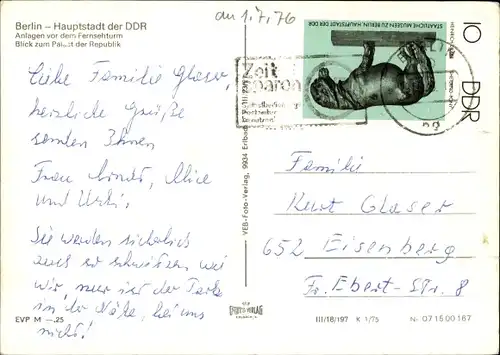 Berlin – Hauptstadt der DDR
Anlagen vor dem Fernsehturm
Blick zum Palast der Republik
an 1.7.76
Liebe Familie Glaser,
herzliche Grüße
senden Ihnen
Frau
und
Sie werden sicherlich
auch so schwitzen wie
wir, nur ist der
in der Nähe, bei uns
nicht!
EVP M –,25
VEB-Foto-Verlag, 9934 Erlbach
Zeit
sparen
STAATLICHE MUSEEN ZU BERLIN, HAUPTSTADT DER DDR
10
DDR
Familie
Kurt Glaser
652 Eisenberg
Fr.-Ebert-Str. 8
III/18/197 K 1/75 Nr. 07 15 00 167